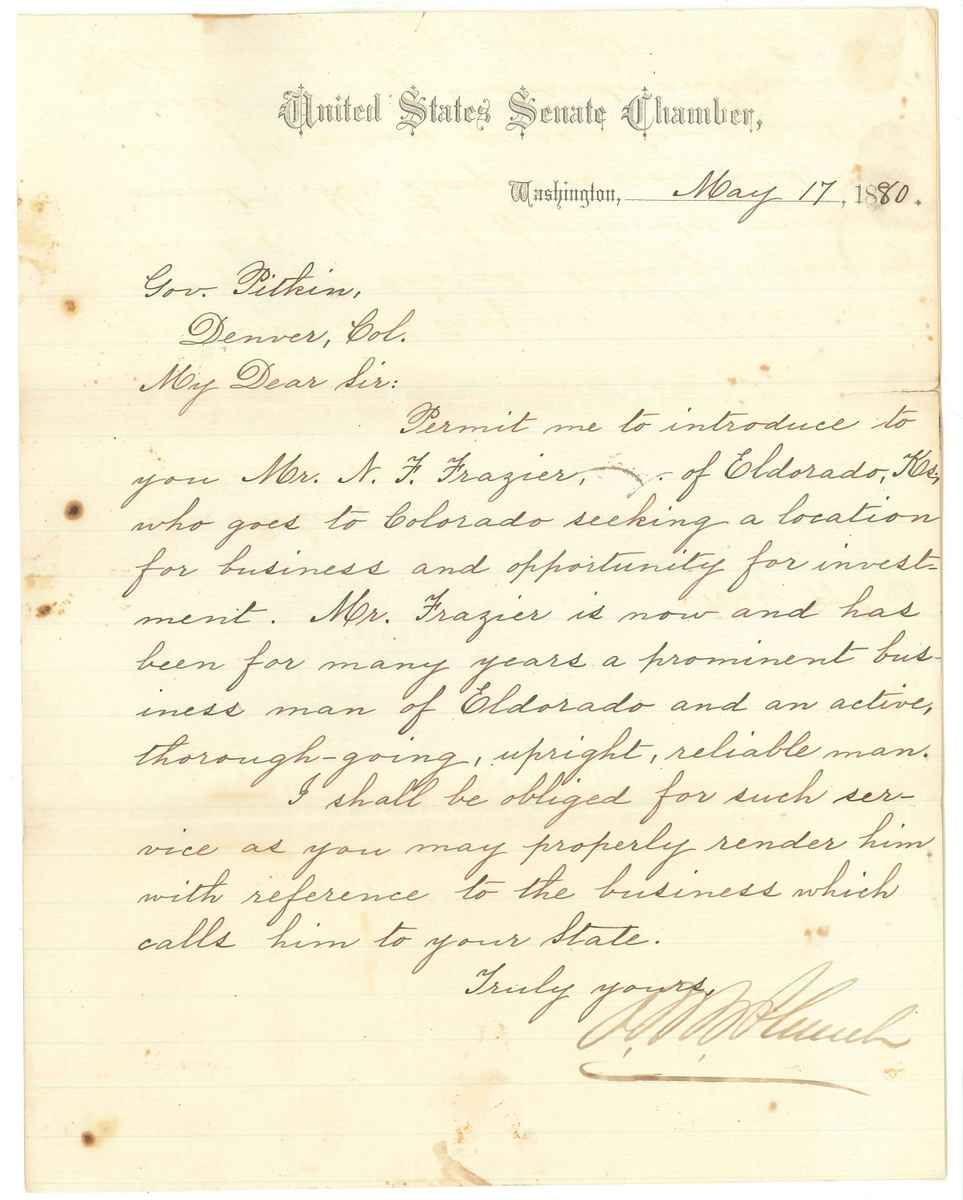 United States Senate Chamber,
Washington, May 17, 1880.
Gov. Pitkin,
Denver, Col.
My Dear Sir:
Permit me to introduce to
you Mr. N. F. Frazier, of Eldorado, Ks.,
who goes to Colorado seeking a location
for business and opportunity for invest-
ment. Mr. Frazier is now and has
been for many years a prominent bus-
iness man of Eldorado and an active,
thorough-going, upright, reliable man.
I shall be obliged for such ser-
vice as you may properly render him
with reference to the business which
calls him to your State.
Truly yours,
P. B. Plumb